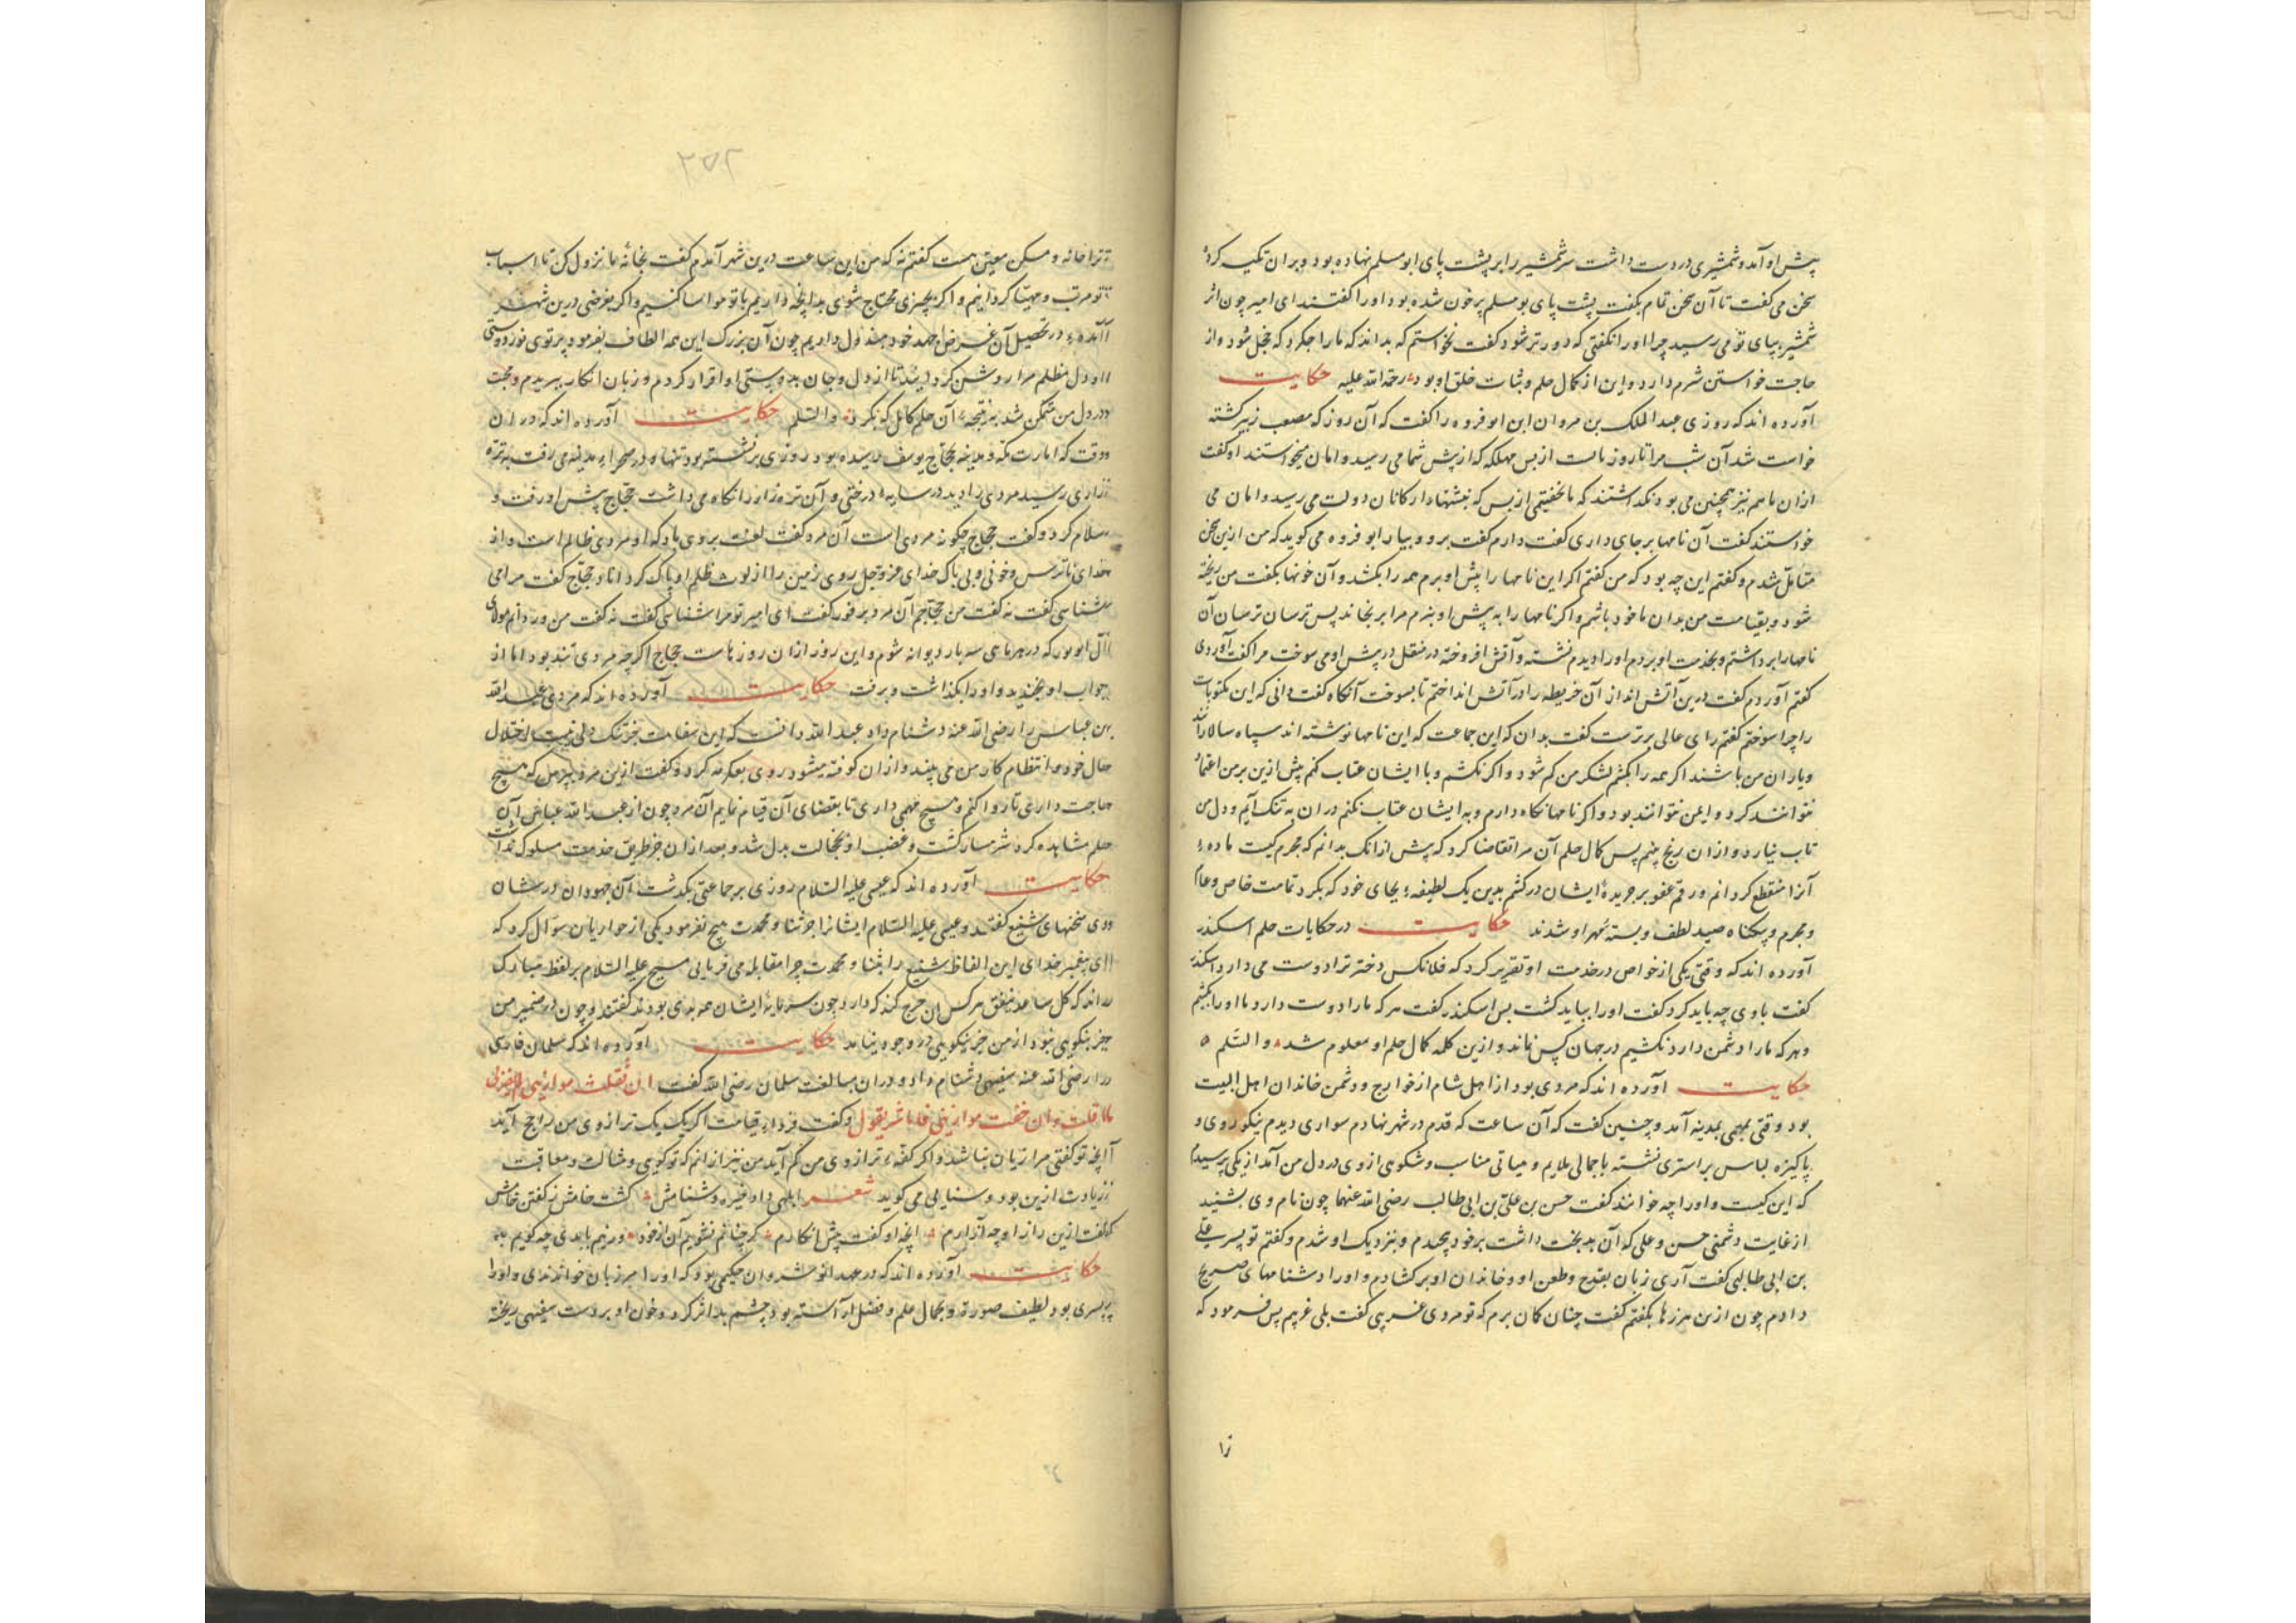 پیش او آمد و شمشیری در دست داشت سر شمشیر را بر پشت پای ابو مسلم نهاده بود و بر ان تکیه کرده
سخن می کفت تا آن سخن تمام بکفت پشت پای بو مسلم پر خون شده بود او را کفتند ای امیر چون اثر
شمشیر بپای تو می رسید چرا او را نکفتی که دورتر شود کفت نخواستم که بداند که ما را چه کرد که خجل شود و از
حاجت خواستن شرم دارد و این از کمال حلم و ثبات خلق او بود رحمة الله علیه حکایت
آورده اند که روزی عبد الملک بن مروان ابن ابو فروه را کفت که آن روز که مصعب زبیر کشته
خواست شد آن شب مرا تا روز مالت از بس مهلکه که از پیش شما می رسید و امان میخواستند او کفت
ازان ما هم نیز همچنین می بود نکداشتند که ما نخفتیمی از بس که نبشتها دار کانان دولت می رسید و امان می
خواستند کفت آن نامها بر جای داری کفت دارم کفت برو و بیار ابو فروه می کوید که من ازین سخن
متأمل شدم و کفتم این چه بود که من کفتم اکر این نامها را پیش او برم همه را بکشد و آن خونها بکفت من ریخته
شود و بقیامت من بدان ماخوذ باشم و اکر نامها را به پیش او نبرم مرا برنجاند پس ترسان ترسان آن
نامها را برداشتم و بخدمت او بردم او را دیدم نشسته و آتش افروخته در منقل در پیش او می سوخت مرا کفت آوردی
کفتم آوردم کفت درین آتش انداز آن خریطه را در آتش انداختم تا بسوخت آنکاه کفت دانی که این مکتوبات
را چرا سوختم کفتم رای عالی برترست کفت بدان که این جماعت که این نامها نوشته اند سپاه سالاران
و یاران من باشند اکر همه را بکشم لشکر من کم شود و اکر نکشم و با ایشان عتاب کنم پیش ازین بر من اعتماد
نتوانند کرد و ایمن نتوانند بود و اکر نامها نکاه دارم و به ایشان عتاب نکنم دران به تنک آیم و دل من
تاب نیارد و ازان رنج بینم پس کمال حلم آن مرا تقاضا کرد که پیش ازانک بدانم که مجرم کیست مادهٔ
آنرا منقطع کردانم و رقم عفو بر جریدهٔ ایشان درکشم بدین یک لطیفهٔ بجای خود که بکرد تمامت خاص و عام
و مجرم و بیکناه صید لطف و بستهٔ مهر او شدند حکایت در حکایات حلم اسکندر
آورده اند که وقتی یکی از خواص در خدمت او تقریر کرد که فلانکس دختر ترا دوست می دارد اسکندر
کفت با وی چه باید کرد کفت او را بباید کشت بس اسکندر کفت هر که ما را دوست دارد ما او را بکشیم
و هر که ما را دشمن دارد نکشیم در جهان کس نماند و ازین کلمه کمال حلم او معلوم شد و السّلم ه
حکایت آورده اند که مردی بود از اهل شام از خوارج و دشمن خاندان اهل البیت
بود وقتی بمهمی بمدینه آمد و چنین کفت که آن ساعت که قدم در شهر نهادم سواری دیدم نیکو روی و
پاکیزه لباس بر استری نشسته با جمالی ملایم و هیاتی مناسب و شکوهی از وی در دل من آمد از یکی پرسیدم
که این کیست و او را چه خوانند کفت حسن بن علی بن ابی طالب رضی الله عنهما چون نام وی بشنید
از غایت دشمنی حسن و علی که آن بدبخت داشت بر خود پیچیدم و بنزدیک او شدم و کفتم تو پسر علی
بن ابی طالبی کفت آری زبان بقدح و طعن او و خاندان او بر کشادم و او را دشنامهای صریح
دادم چون ازین هرزها بکفتم کفت چنان کمان برم که تو مردی غریبی کفت بلی غریبم پس فرمود که
ترا
ترا خانه و مسکن معین هست کفتم نه که من این ساعت درین شهر آمدم کفت بخانهٔ ما نزول کن تا اسباب
تو مرتب و مهیا کردانیم و اکر بچیزی محتاج شوی بدانچه داریم با تو مواسا کنیم و اکر بغرضی درین شهر
آمدهٔ در تحصیل آن غرض جهد خود مبذول داریم چون آن بزرک این همه الطاف بفرمود پرتوی نور دوستی
او دل مظلم مرا روشن کردانید تا از دل و جان بدوستی او اقرار کردم و زبان انکار ببریدم و محبت
در دل من متمکن شد به نتیجهٔ آن حلم کامل که بکرد و السّلم حکایت آورده اند که در ان
وقت که امارت مکه و مدینه بحجاج یوسف رسیده بود روزی بر نشسته بود تنها و در صحراء مدینه می رفت به تره
زاری رسید مردی را دید در سایهٔ درختی و آن تره زار را نکاه می داشت حجاج پیش او رفت و
سلام کرد و کفت حجاج چکونه مردی است آن مرد کفت لعنت بروی باد که او مردی ظالم است و از
خدای ناترس و خونی و بی باک خدای عز و جل روی زمین را از لوث ظلم او پاک کرداناد حجاج کفت مرا می
شناسی کفت نه کفت من حجاجم آن مرد بر فور کفت ای امیر تو مرا شناسی کفت نه کفت من وردانم مولای
آل ابو بور که در هر ماهی سه بار دیوانه شوم و این روز ازان روزهاست حجاج اکرچه مردی تند بود اما از
جواب او بخندید و او را بکذاشت و برفت حکایت آورده اند که مردی عبد الله
بن عباس را رضی الله عنه دشنام داد عبد الله دانست که این سفاهت از تنک دلی نیست از اختلال
حال خود و انتظام کار من می بیند و ازان کوفته میشود روی بعکرمه کرد و کفت ازین مرد بپرس که هیچ
حاجت داری تا روا کنم و هیچ مهمی داری تا بقضای آن قیام نمایم آن مرد چون از عبد الله عباس آن
حلم مشاهده کرد شرمسار کشت و غضب او بخجالت بدل شد و بعد ازان جز طریق خدمت مسلوک نداشت
حکایت آورده اند که عیسی علیه السّلام روزی بر جماعتی بکذشت آن جهودان در شان
وی سخنهای شنیع کفتند و عیسی علیه السّلام ایشانرا جز ثنا و محمدت هیچ نفرمود یکی از حواریان سوال کرد که
ای پیغمبر خدای این الفاظ شنیع را بثنا و محمدت چرا مقابله می فرمایی مسیح علیه السّلام بر لفظ مبارک
راند که کل ساعد ینفق هر کس آن خرج کند که دارد چون سرمایهٔ ایشان همه بدی بود بد کفتند و چون در ضمیر من
جز نیکویی نبود از من جز نیکویی در وجود نیاید حکایت آورده اند که سلمان فارسی
را رضی الله عنه سفیهی دشنام داد و دران مبالغت سلمان رضی الله کفت ان ثقلت موازینی لم یضرنی
ما قلت و ان خفت موازینی فانا شر مما تقول و کفت فرداء قیامت اکر یک یک ترازوی من راجح آید
آنچه تو کفتی مرا زیان نباشد و اکر کفهٔ ترازوی من کم آید من نیز ازانم که تو کویی و مثالث و معاقبت
زیادت ازین بود و سنایی می کوید شعر ابلهی داد خیره دشنامش کشت خامش ز کفتن خامش
کفت ازین راز او چه آزارم آنچه او کفت پیش انکارم کر چنانم نشویم آن از خود ور نیم با بدی چه کویم بد
حکایت آورده اند که در عهد انوشروان حکیمی بود که او را مرزبان خواندندی و او را
پسری بود لطیف صورت و بجمال علم و فضل آراسته بود چشم بد اثر کرد و خون او بر دست سفیهی ریخته